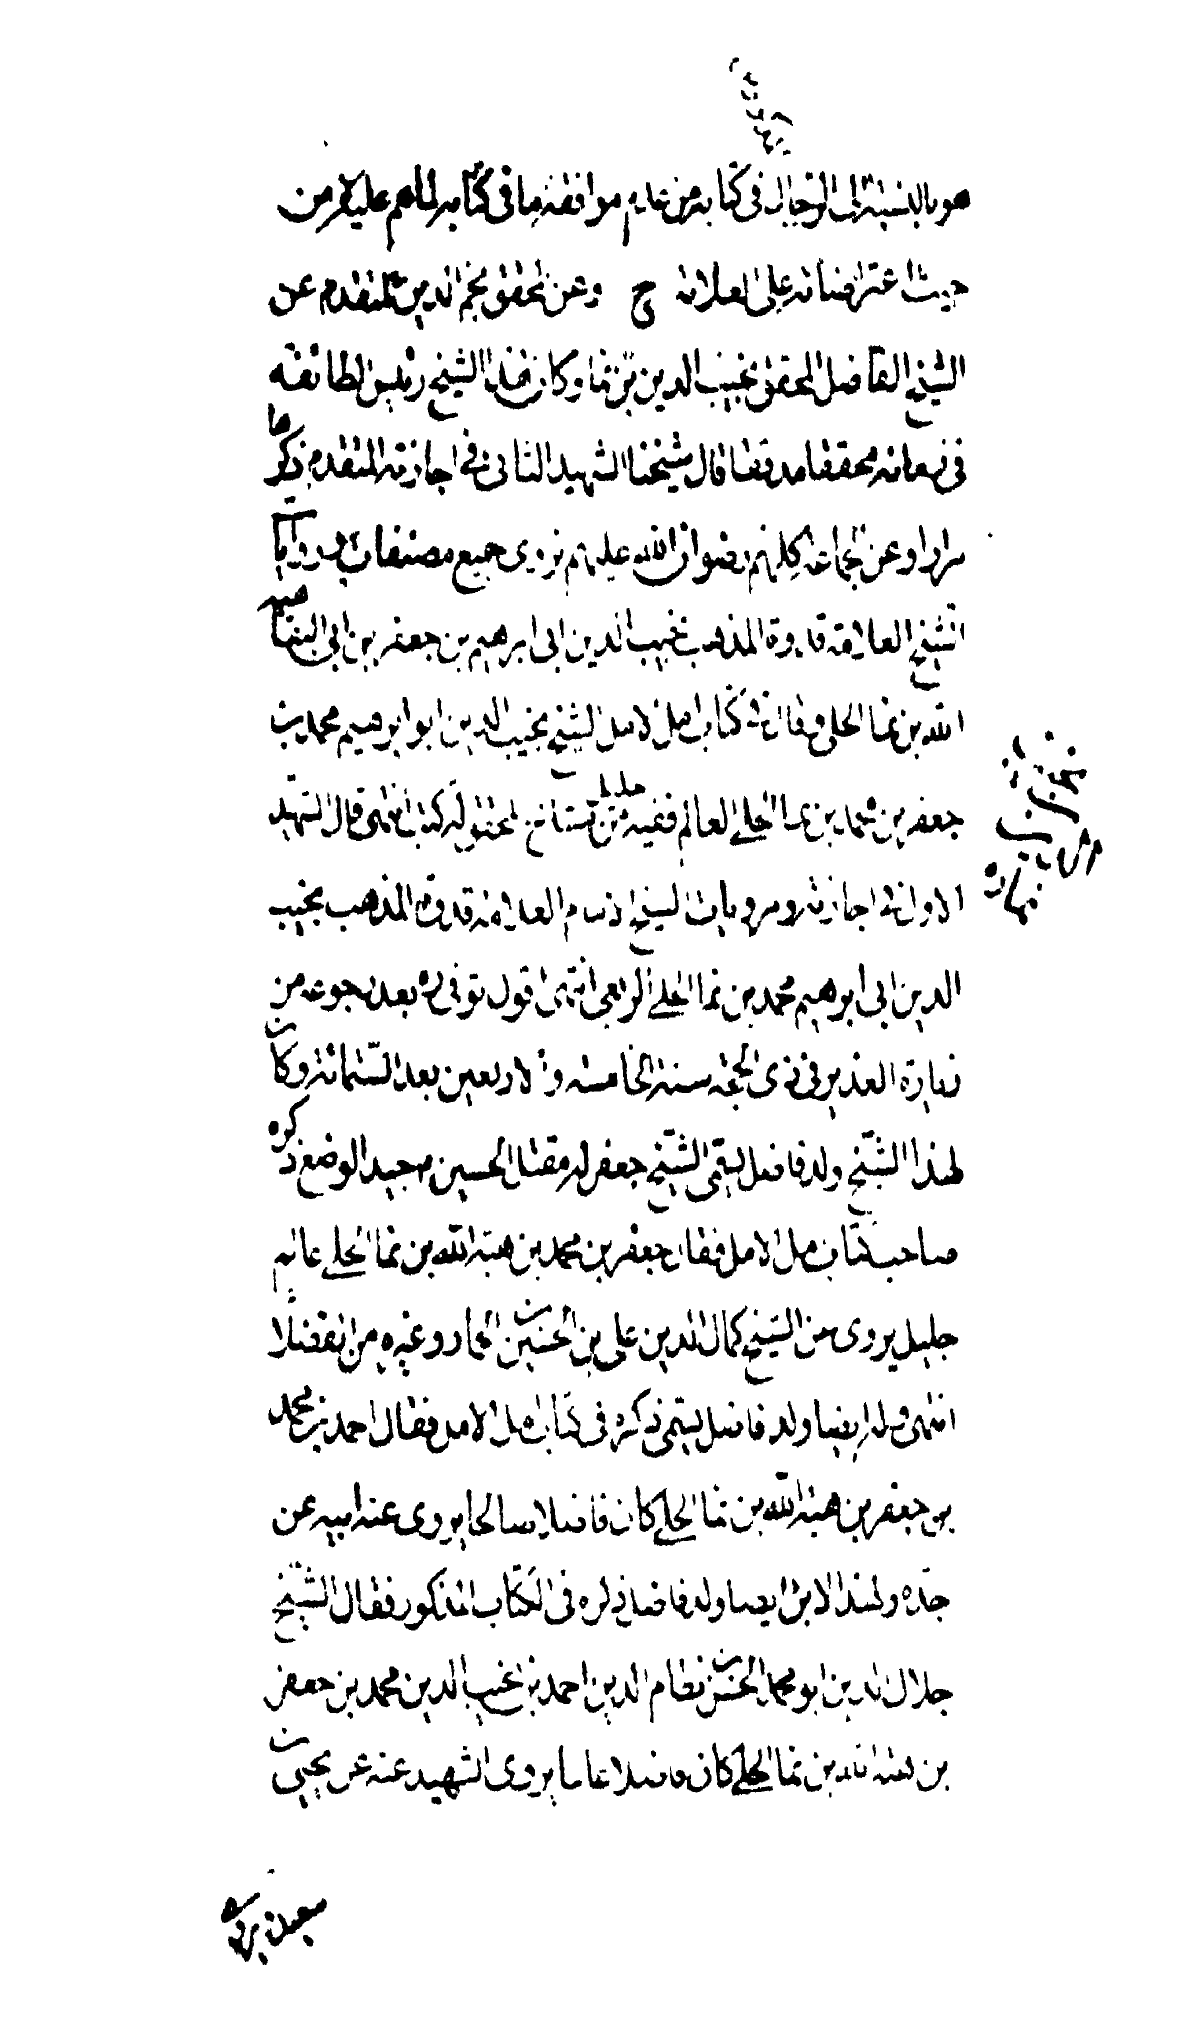 هو بالنسبة الى الرجال في كتابه من عدم موافقة ما في كتابه لما هم عليه من
حيث اعتراضاته على العلامة ح وعن المحقق نجم الدين المتقدم عن
الشيخ الفاضل المحقق نجيب الدين بن نما وكان هذا الشيخ رئيس الطائفة
في زمانه محققا مدققا قال شيخنا الشهيد الثاني في اجازته المتقدم ذكرها
مرارا وعن الجماعة كلهم رضوان الله عليهم نروي جميع مصنفات ومرويات
الشيخ العلامة قدوة المذهب نجيب الدين ابي ابرهيم بن جعفر بن ابي البقا هبة
الله بن نما الحلي وقال في كتاب امل الامل الشيخ نجيب الدين ابو ابرهيم محمد بن
جعفر بن محمد بن نما الحلي العالم فقيه جليل من مشايخ المحقق له كتب انتهى قال الشهيد
الاول في اجازته ومرويات الشيخ الامام العلامة قدوة المذهب نجيب
الدين ابي ابرهيم محمد بن نما الحلي الربعي انتهى اقول توفي ره بعد رجوعه من
زيارة الغدير في ذي الحجة سنة الخامسة والاربعين بعد الستمائة وكان
لهذا الشيخ ولد فاضل يسمى الشيخ جعفر له مقتل الحسين م جيد الوضع ذكره
صاحب كتاب امل الامل فقال جعفر بن محمد بن هبة الله بن نما الحلي عالم
جليل يروي عن الشيخ كمال الدين علي بن الحسين بن الحماد وغيره من الفضلا
انتهى وله ايضا ولد فاضل يسمى ذكره في كتاب امل الامل فقال احمد بن محمد
بن جعفر بن هبة الله بن نما الحلي كان فاضلا صالحا يروي عنه ابيه عن
جده ولهذا الابن ايضا ولد فاضل ذكره في الكتاب المذكور فقال الشيخ
جلال الدين ابو محمد الحسن بن نظام الدين احمد بن نجيب الدين محمد بن جعفر
بن هبة الله بن نما الحلي كان فاضلا عالما يروي الشهيد عنه عن يحيى بن